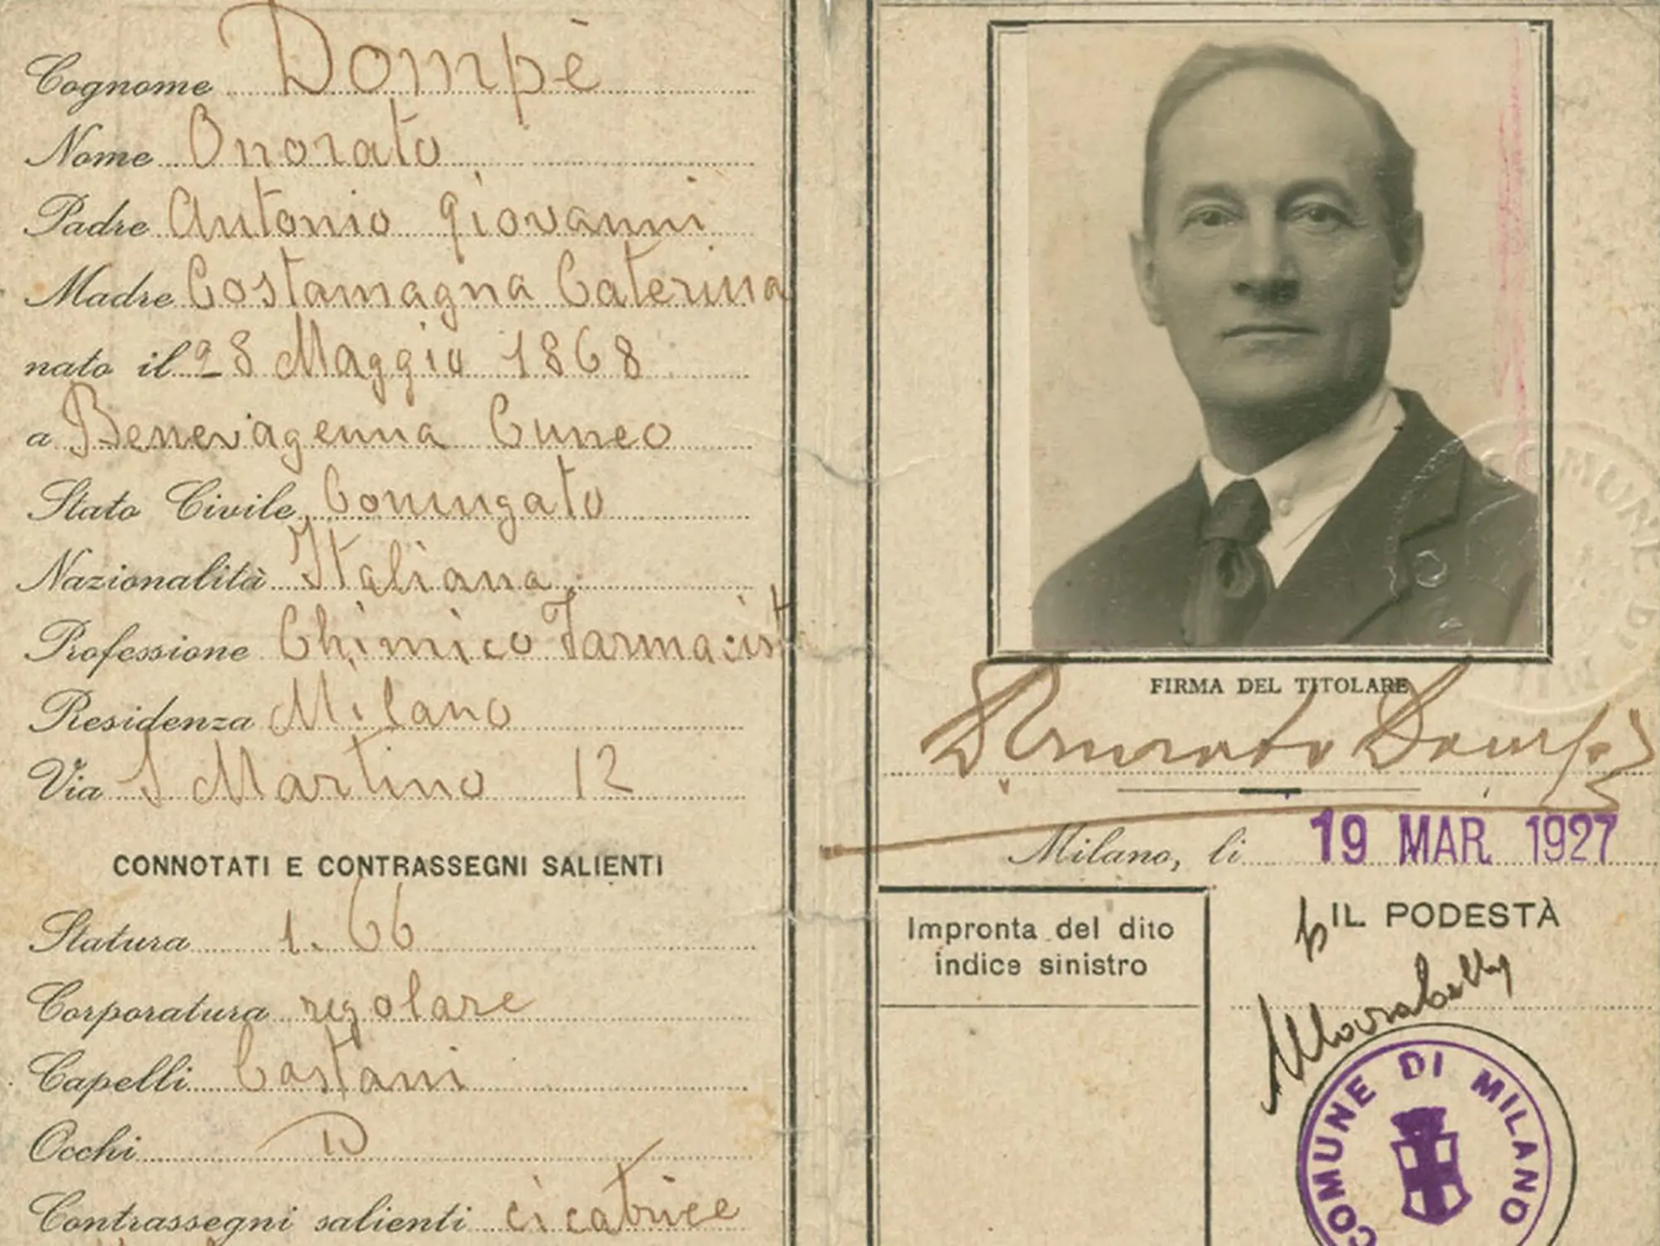 Cognome Dompè
Nome Onorato
Padre Antonio Giovanni
Madre Costamagna Caterina
nato il 28 Maggio 1868
a Benevagenna Cuneo
Stato Civile Coniugato
Nazionalità Italiana
Professione Chimico Farmacista
Residenza Milano
Via S Martino 12
CONNOTATI E CONTRASSEGNI SALIENTI
Statura 1.66
Corporatura regolare
Capelli Castani
Occhi
Contrassegni salienti cicatrice
FIRMA DEL TITOLARE
Onorato Dompè
Milano, li 19 MAR. 1927
Impronta del dito
indice sinistro
IL PODESTÀ
COMUNE DI MILANO
COMUNE DI